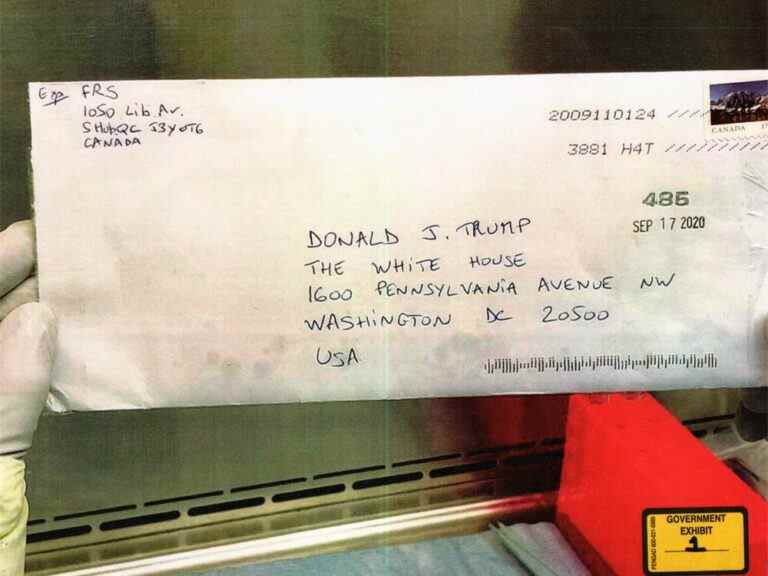 Exp FRS
1050 Lib Av.
SHub. QC J3Y 0T6
CANADA
2009110124 /////
3881 H4T //////////////
CANADA
485
SEP 17 2020
DONALD J. TRUMP
THE WHITE HOUSE
1600 PENNSYLVANIA AVENUE NW
WASHINGTON DC 20500
USA
GOVERNMENT
EXHIBIT
1